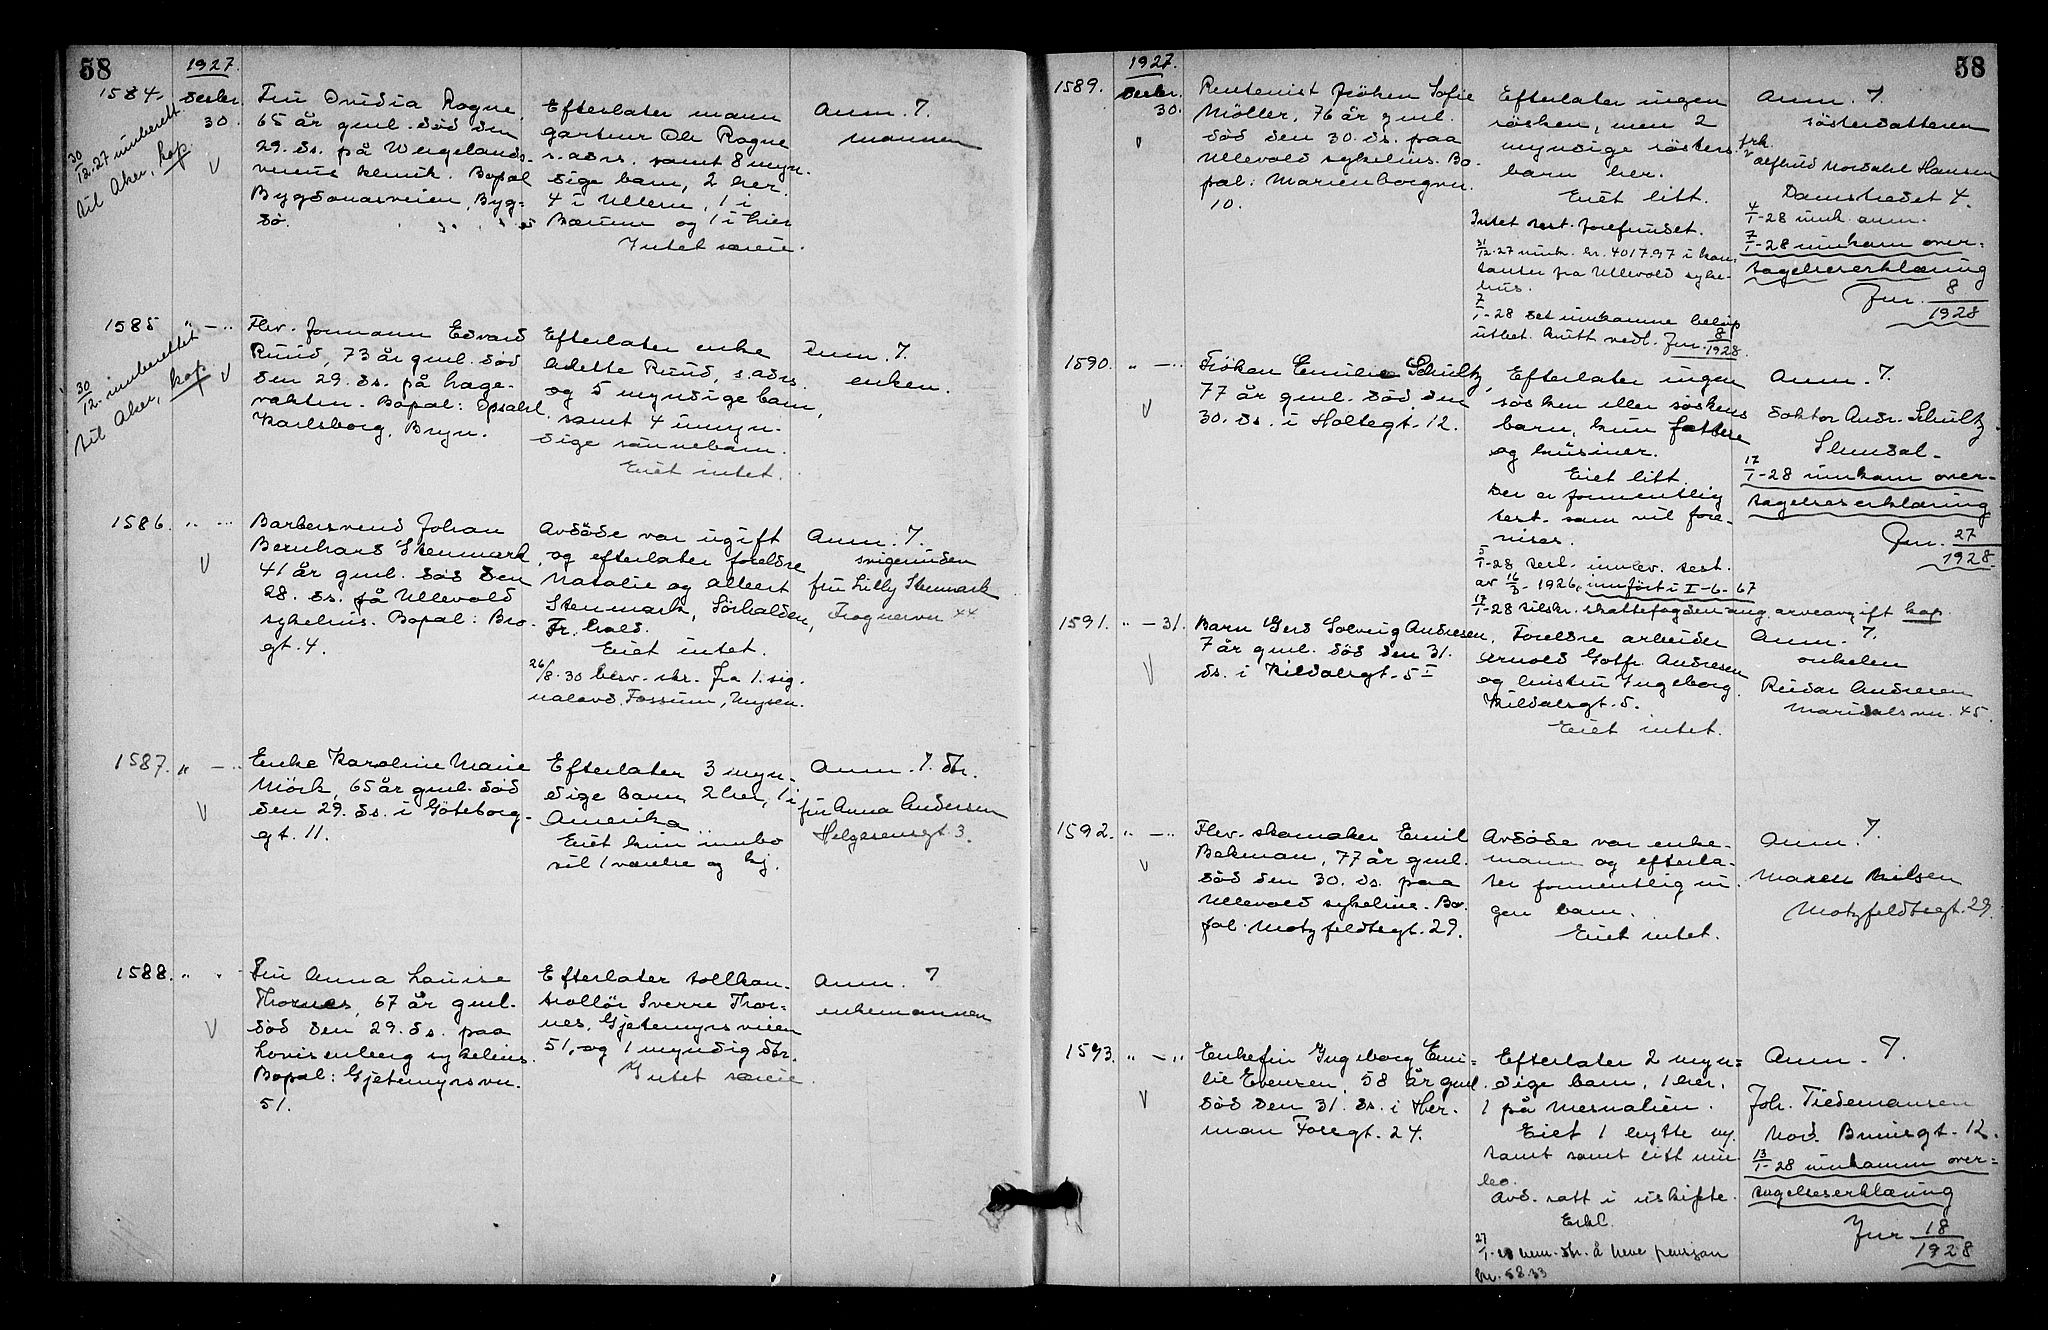 58
1927.
1584.
Desbr.
30.
30/12-27 innberett.
til Aker, kop
Fru Ovidia Rogne,
65 år gml. død den
29. ds. på Wergelands-
veiens klinik. Bopal
Bygdønesveien, Byg-
dø.
Efterlater mann
gartner Ole Rogne
s. adrs. samt 8 myn-
dige barn, 2 her.
4 i Ullern, 1 i
Bærum og 1 i Lier
Intet særeie.
Anm. 7.
mannen
1585
" — "
30/12. innberettet
til Aker, kop
Fhv. formann Edvard
Ruud, 73 år gml. død
den 29. ds. på Hage-
vakten. Bopal: Opsahl
Karlsborg, Bryn.
Efterlater enke
Adette Ruud, s. adrs.
og 5 myndige barn,
samt 4 umyn-
dige sønnebarn.
Eiet intet.
Anm. 7.
enken.
1586.
" — "
Barbersvend Johan
Bernhard Stenmark,
41 år gml. død den
28. ds. på Ullevold
sykehus. Bopal: Bro-
gt. 4.
Avdøde var ugift
og efterlater foreldre
Natalie og Albert
Stenmark, Sørhalden,
Fr. hald.
Eiet intet.
26/8-30 besv. skr. fra 1. sig-
nalavd. Fossum, Mysen.
Anm. 7.
svigerinden
fru Lilly Stenmark
Frognervn 44
1587.
" — "
Enke Karoline Marie
Mörk, 65 år gml. död
den 29. ds. i Göteborg-
gt. 11.
Efterlater 3 myn-
dige barn 2 her, 1 i
Amerika.
Eiet kun innbo
til 1 værelse og kj.
Anm. 7. dtr.
fru Anna Andersen
Helgesensgt 3.
1588.
" — "
Fru Anna Louise
Thornes, 67 år gml.
död den 29. ds. paa
Lovisenberg sykehus.
Bopal: Gjetemyrsvn.
51.
Efterlater tollkon-
trollör Sverre Thor-
nes, Gjetemyrsveien
51, og 1 myndig dtr.
Intet særeie.
Anm. 7
enkemannen
58
1927.
1589.
Desbr.
30.
Rentenist fröken Sofie
Möller, 76 år gml.
död den 30. ds. paa
Ullevold sykehus. Bo-
pal: Marienborgvn.
10.
Efterlater ingen
søsken, men 2
myndige søsters-
barn her.
Eiet litt.
Intet test. forefundet.
31/12-27 innk. kr. 4017.97 i kon-
tanter fra Ullevold syke-
hus.
7/1-28 det innkomne beløp
utbet. kvitt vedl. Jnr. 8/1928.
Anm. 7.
søsterdatteren
frk.
Alfhild Nordahl Hansen
Damstredet 4.
4/1-28 innk. anm.
7/1-28 innkom over-
tagelseserklæring
Jnr. 8/1928
1590.
" — "
Fröken Emilie Schultz,
77 år gml. död den
30. ds. i Holtegt. 12.
Efterlater ingen
søsken eller søskens
barn, kun fættere
og kusiner.
Eiet litt
Der er formentlig
test. som vil fore-
vises.
5/1-28 innlev. test.
av 16/3-1926, innført i I-6-67
17/1-28 tilskr. skattefogden ang. arveavgift kop.
Anm. 7.
doktor Andr. Schultz
Slemdal-
17/1-28 innkom over-
tagelseserklæring
Jnr. 27/1928.
1591.
" — 31.
Barn Gerd Solveig Andresen,
7 år gml. död den 31.
ds. i Kildalsgt. 5 I
Foreldre arbeider
Arnold Gotfr. Andresen
og hustru Ingeborg,
Kildalsgt. 5.
Eiet intet.
Anm. 7.
onkelen
Reidar Andresen
Maridalsvn. 45.
1592.
" — "
Fhv. skomaker Emil
Bekman, 77 år gml.
död den 30. ds. paa
Ullevold sykehus. Bo-
pal. Motzfeldtsgt. 29.
Avdøde var enke-
mann og efterla-
ter formentlig in-
gen barn.
Eiet intet.
Anm. 7.
Maren Nilsen
Motzfeldtsgt. 29.
1593.
" — "
Enkefru Ingeborg Emi-
lie Evensen, 58 år gml.
död den 31. ds. i Her-
man Fossgt. 24.
Efterlater 2 myn-
dige barn, 1 her,
1 på Mesnalien.
Eiet 1 hytte
samt litt inn-
bo.
Avd. satt i uskifte.
Erkl.
27/1- bem. dtr. å heve pensjon
kr. 58.33
Anm. 7.
Joh. Tiedemansen
Nord. Brunsgt. 12.
13/1-28 innkom over-
tagelseserklæring
Jnr 18/1928